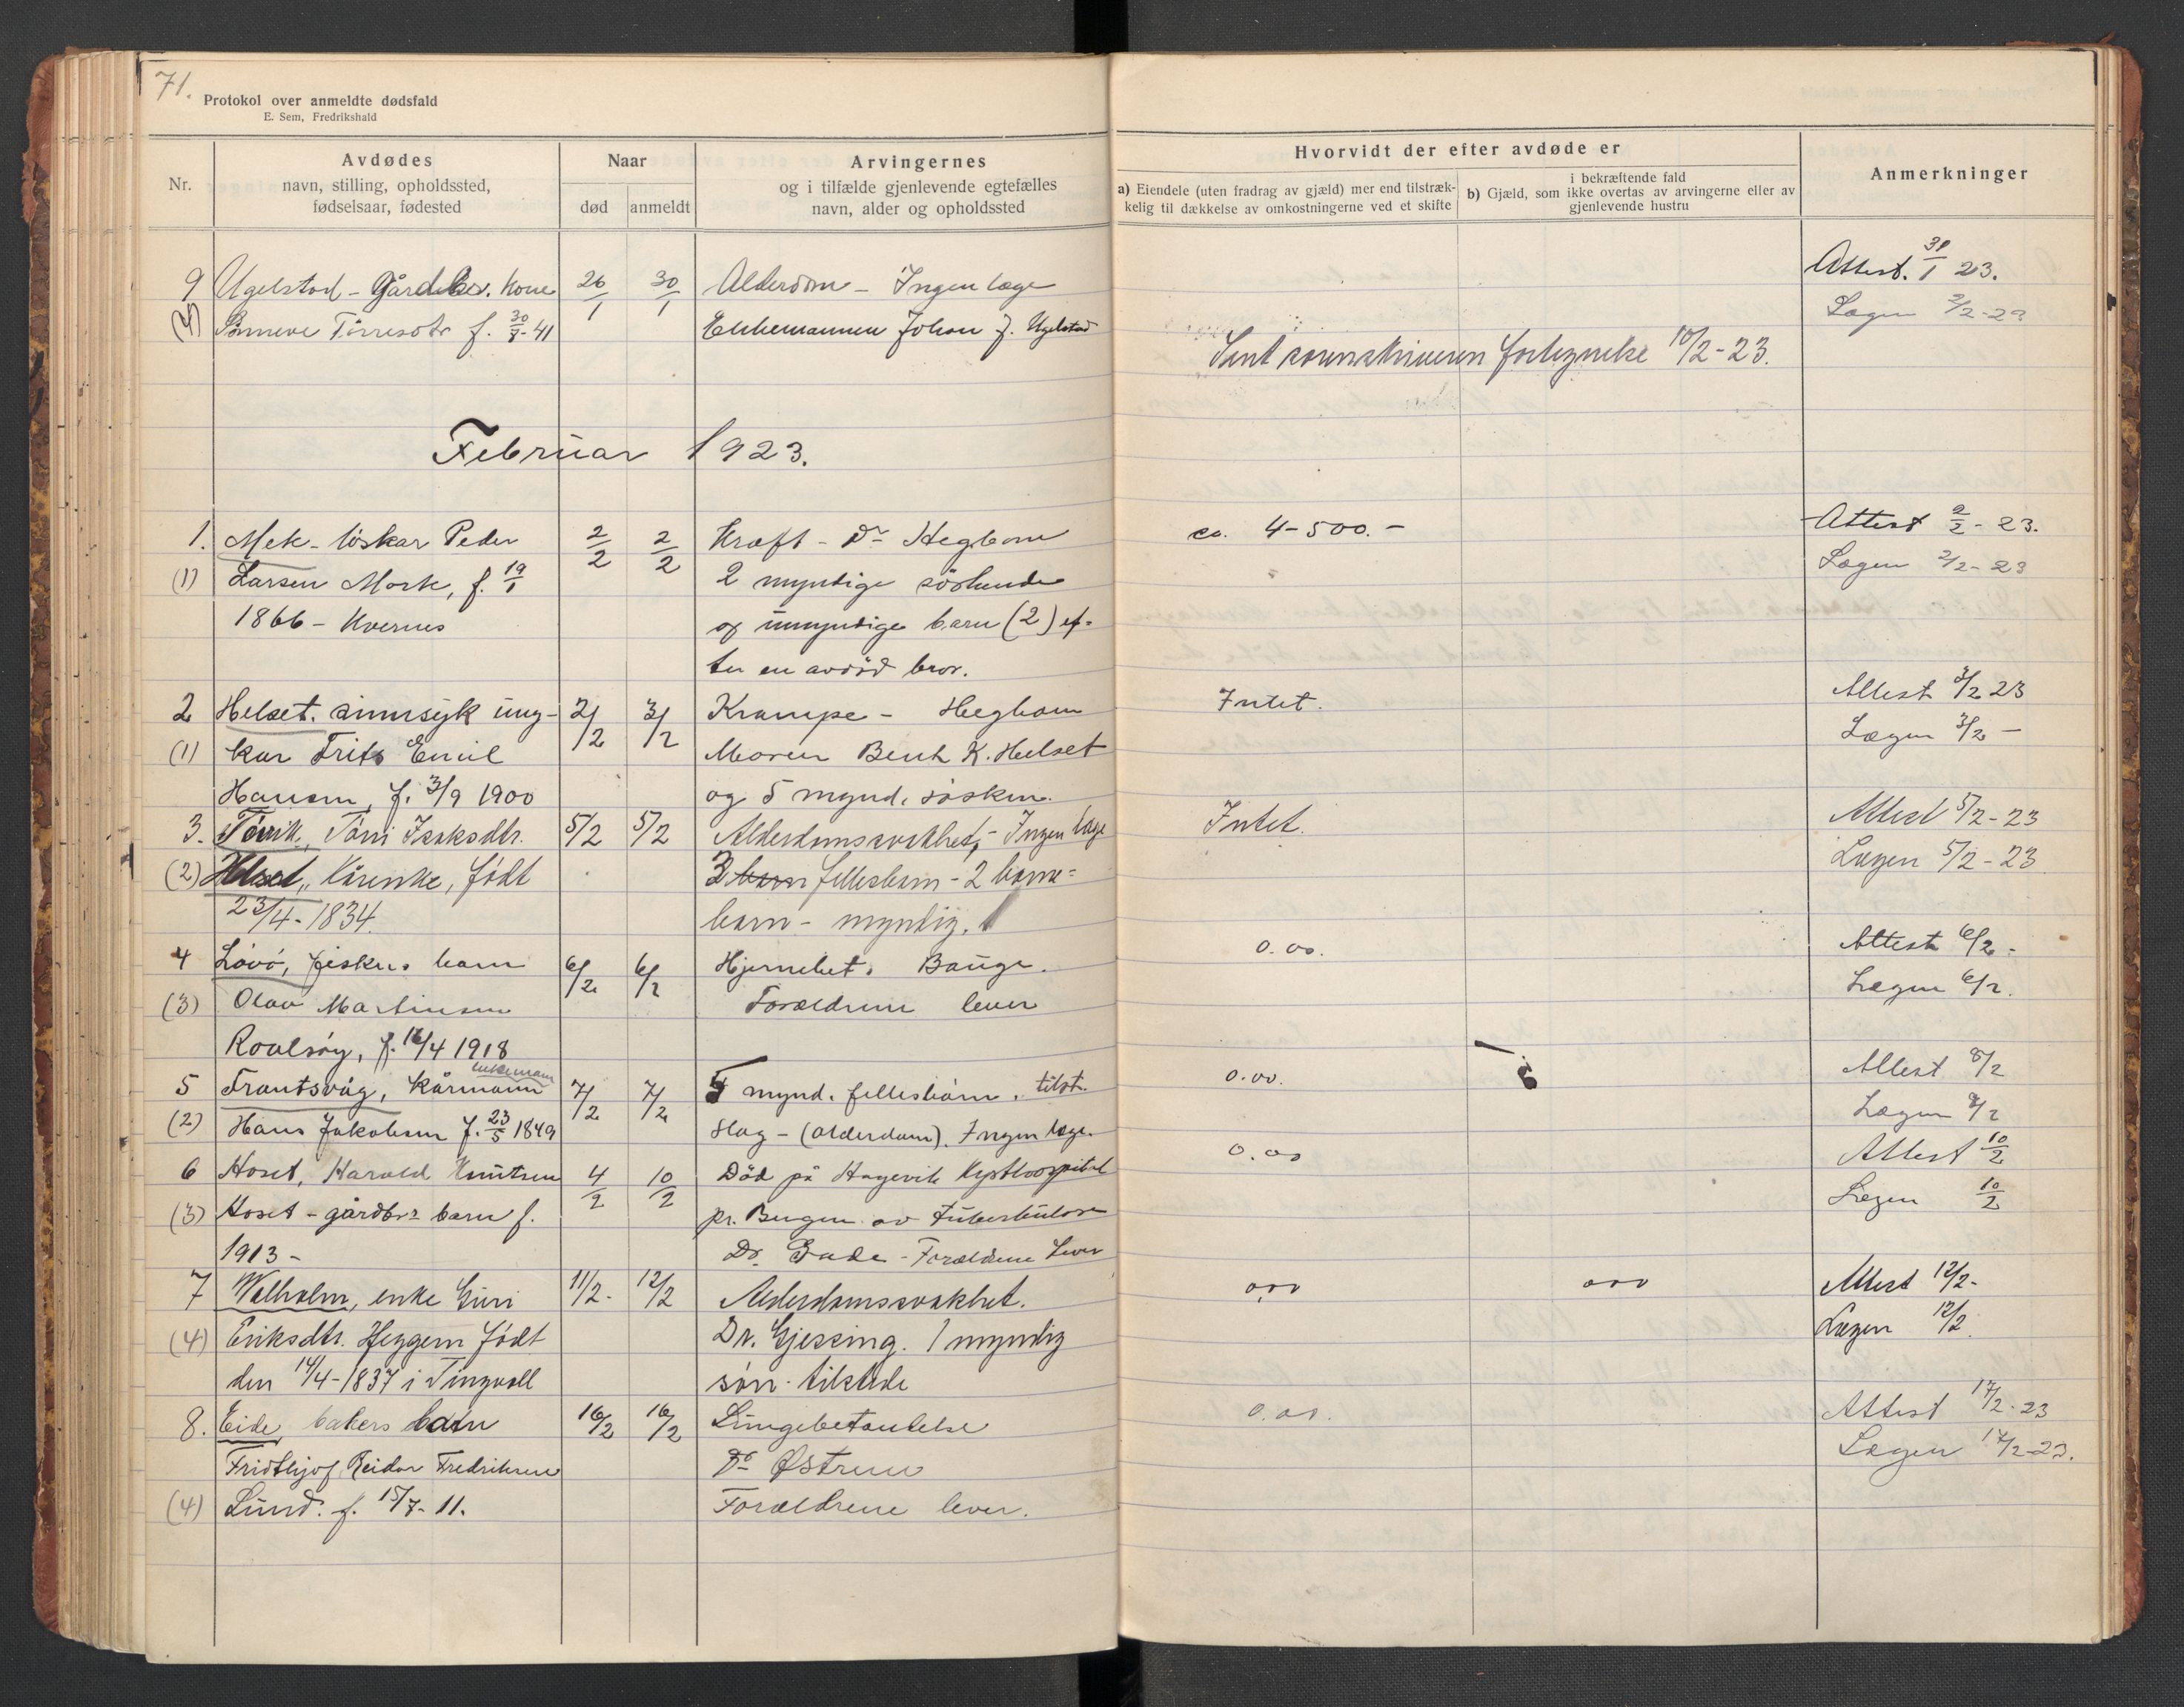 71.
Protokol over anmeldte dødsfald
E. Sem, Fredrikshald
Nr.
Avdødes
navn, stilling, opholdssted,
fødselsaar, fødested
Naar
død
anmeldt
Arvingernes
og i tilfælde gjenlevende egtefælles
navn, alder og opholdssted
Hvorvidt der efter avdøde er
a) Eiendele (uten fradrag av gjæld) mer end tilstræk-
kelig til dækkelse av omkostningerne ved et skifte
i bekræftende fald
b) Gjæld, som ikke overtas av arvingerne eller av
gjenlevende hustru
Anmerkninger
9 Ugelstad - Gårdbr. kone 26/1 30/1 Alderdom - Ingen læge Attest. 31/1 23.
Sønneve Tørresdtr f. 30/7-41 Enkemannen Johan J. Ugelstad Lægen 2/2-23
Sent sorenskriveren fortegnelse 10/2-23.
Februar 1923.
1. Mek - løskar Peder 2/2 2/2 Kræft - Dr Hegbom ca. 4-500.- Attest 2/2-23.
(1) Larsen Mork, f. 19/1 2 myndige søskende Lægen 2/2-23
1866 - Kvernes og umyndige barn (2) ef-
ter en avdød bror.
2 Helset. sinnsyk ung- 2/2 3/2 Krampe - Hegbom Intet. Attest 3/2 23
(1) kar Frits Emil Moren Berit K. Helset Lægen 3/2 -
Hansen, f. 3/9 1900 og 5 mynd. søsken.
3. Törrik, Töri Isaksdtr. 5/2 5/2 Alderdomssvakhet, - Ingen læge Intet. Attest 5/2-23
(2) Helset, Kårenke, født 3 barn fellesbarn - 2 barne- Lægen 5/2-23
23/4-1834. barn - myndig.
4 Løvø, fiskers barn 6/2 6/2 Hjernebet. Bauge. 0.00. Attest 6/2-
(3) Olav Martinsen Forældrene lever Lægen 6/2.
Roalsøy, f. 16/4 1918
enkemann
5 Frantsvåg, kårmann 7/2 7/2 5 mynd. fellesbarn. tilst. 0.00. Attest 8/2
(2) Hans Jakobsen f. 23/5 1849 Slag - (alderdom). Ingen læge. Lægen 8/2
6 Hoset, Harald Knutsen 4/2 10/2 Død på Hagevik Kysthospital 0.00 Attest 10/2
(3) Hoset - gårdbrs barn f. pr. Bergen av Tuberkulose Lægen 10/2
1913 - Dr. Gade - Forældrene Lever
7 Walholm, enke Guri 11/2- 12/2 Alderdomssvakhet. 0,00 000 Attest 12/2-
(4) Eriksdtr. Heggem født Dr. Gjessing. 1 myndig Lægen 12/2.
den 14/4-1837 i Tingvoll søn tilstede
8. Eide, bakers barn 16/2 16/2 Lungebetændelse 0.00. Attest 17/2-23
Fridthjof Reidar Fredriksen Dr Østrem Lægen 17/2-23.
(4) Lund. f. 15/7-11. Forældrene lever.